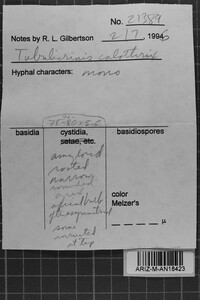 No. 21389
Notes by R. L. Gilbertson 2/7, 1996
Tubulicrinis calothrix
Hyphal characters: mono
basidia cystidia, basidiospores
setae, etc.
amyloid
rooted
narrow
rounded
apical bulb
some
encrusted
at tip
color
Melzer's
µ
ARIZ-M-AN18423